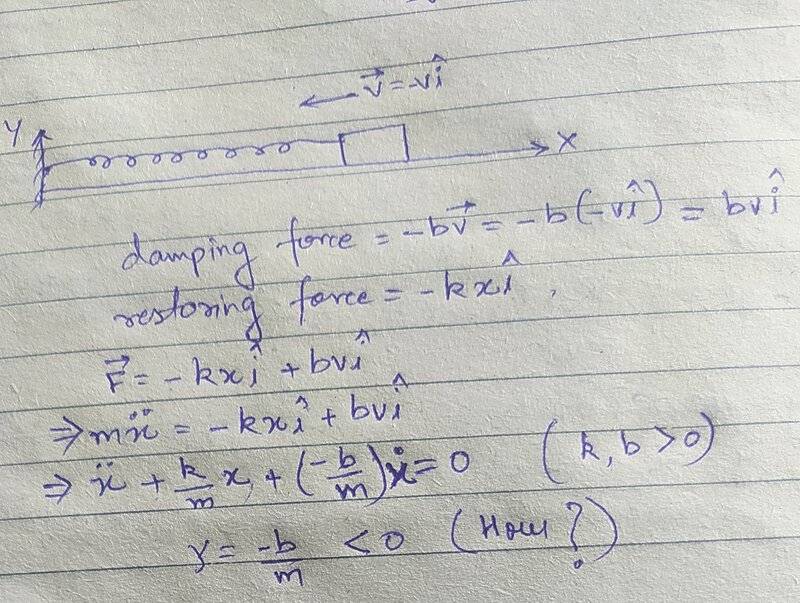 v⃗ = -vî
Y
X
damping force = -bv⃗ = -b(-vî) = bvî
restoring force = -kxî .
F⃗ = -kxî + bvî
⇒ mẍ = -kxî + bvî
⇒ ẍ + k/m x + (-b/m)ẋ = 0 (k, b > 0)
γ = -b/m < 0 (How ?)